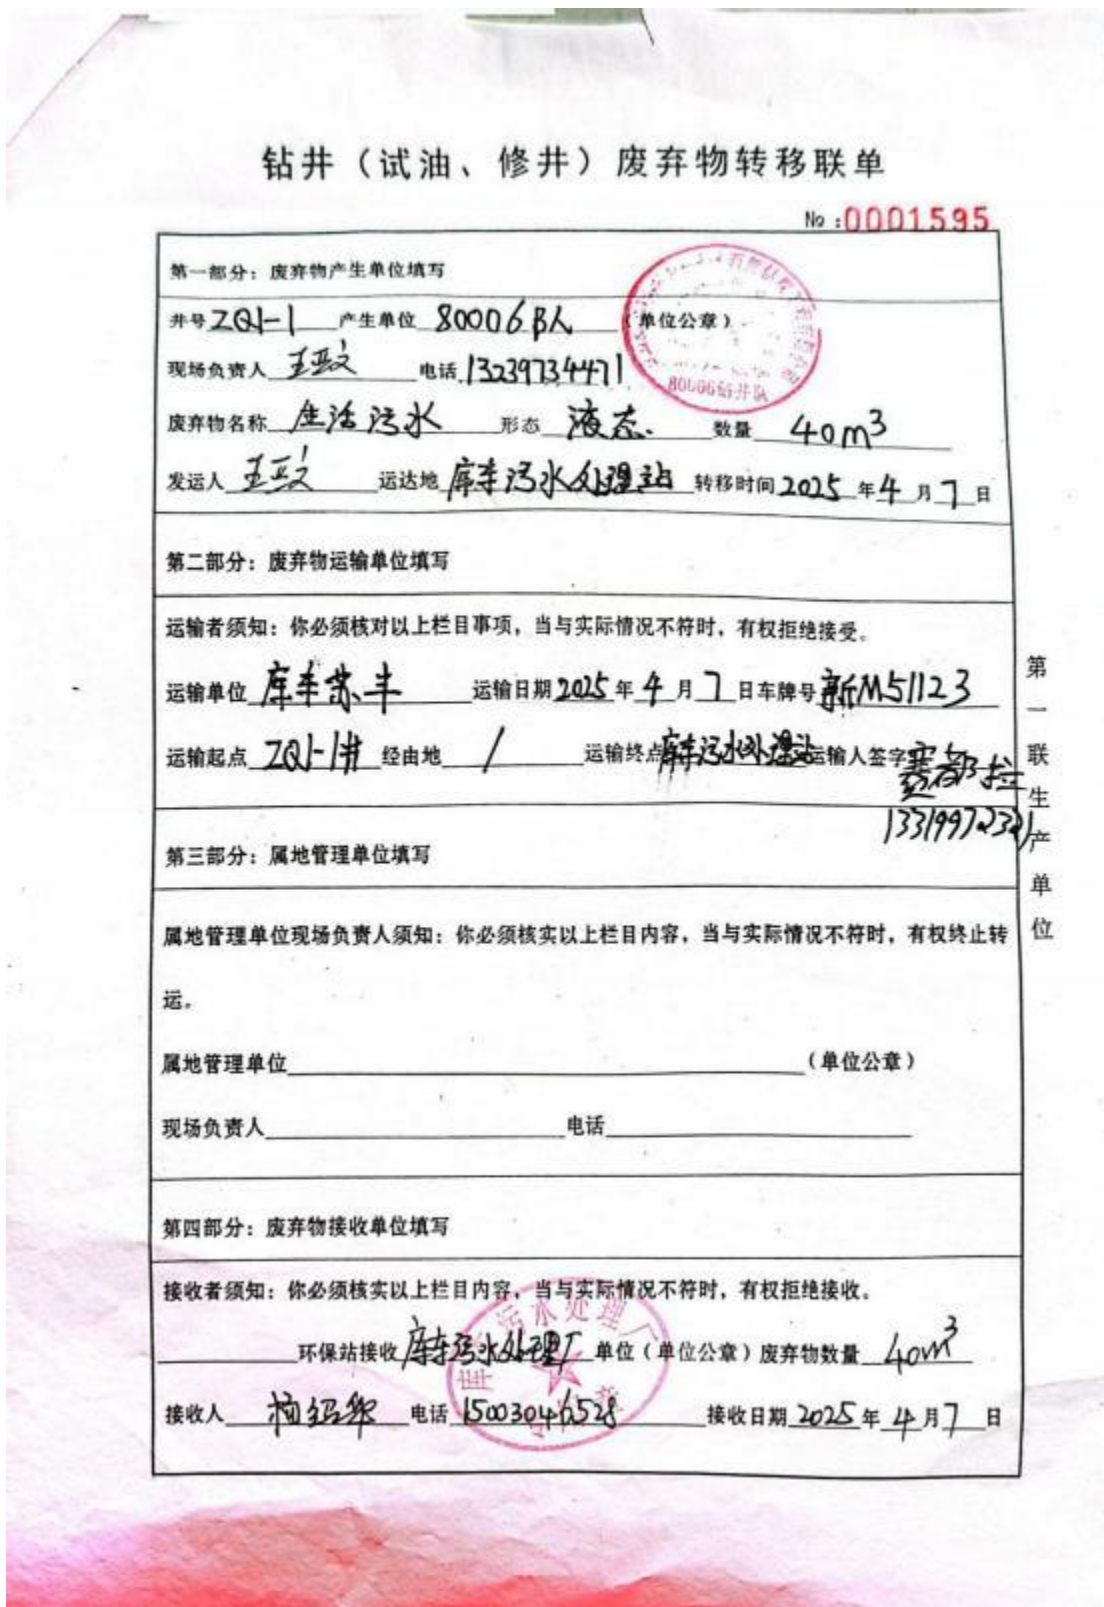 钻井（试油、修井）废弃物转移联单
No：0001595
第一部分：废弃物产生单位填写
井号 ZQ1-1 产生单位 80006队 （单位公章）
80006钻井队
现场负责人 王亚文 电话 13239734471
废弃物名称 生活污水 形态 液态 数量 40m³
发运人 王亚文 运达地 库车污水处理站 转移时间 2025 年 4 月 7 日
第二部分：废弃物运输单位填写
运输者须知：你必须核对以上栏目事项，当与实际情况不符时，有权拒绝接受。
运输单位 库车苏丰 运输日期 2025 年 4 月 7 日 车牌号 新M51123
运输起点 ZQ1-1井 经由地 / 运输终点 库车污水处理站 运输人签字
第三部分：属地管理单位填写
属地管理单位现场负责人须知：你必须核实以上栏目内容，当与实际情况不符时，有权终止转
运。
属地管理单位 （单位公章）
现场负责人 电话
第四部分：废弃物接收单位填写
接收者须知：你必须核实以上栏目内容，当与实际情况不符时，有权拒绝接收。
环保站接收 库车污水处理厂 单位（单位公章）废弃物数量 40m³
接收人 电话 15003046528 接收日期 2025 年 4 月 7 日
第一联生产单位